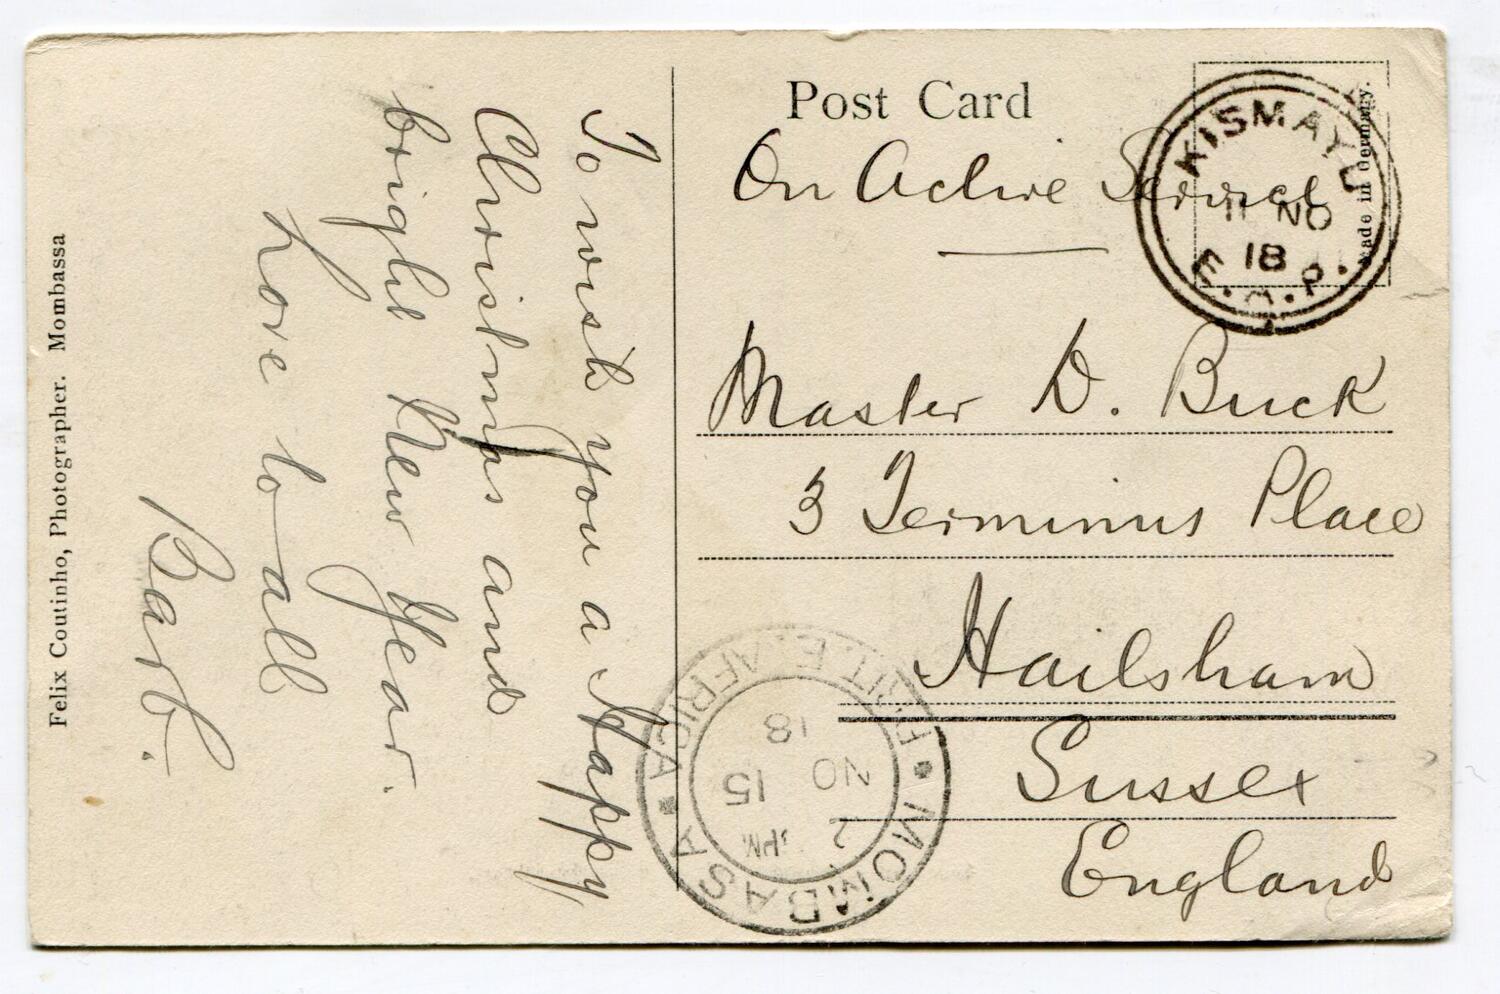 Post Card
On Active Service
KISMAYU
11 NO
18
E.A.P.
Made in Germany.
Master D. Buck
3 Terminus Place
Hailsham
Sussex
England
To wish you a Happy
Christmas and
bright New Year.
Love to all
Barb.
Felix Coutinho, Photographer. Mombassa
MOMBASA
BRIT. E. AFRICA
2 PM
15
NO
18